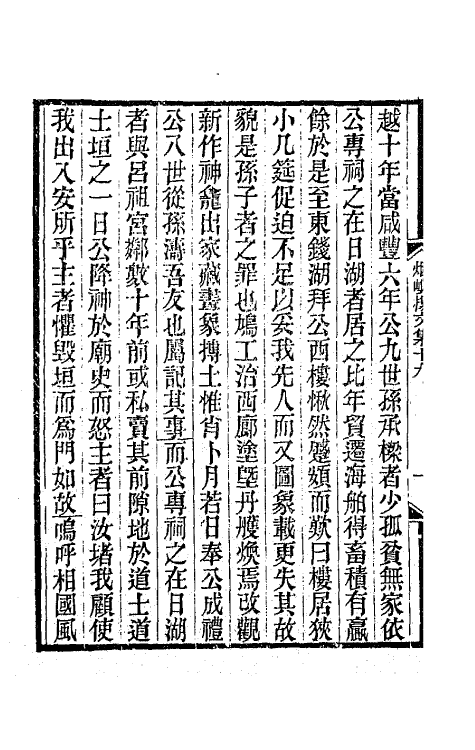 越十年當咸豐六年公九世孫承樑者少孤貧無家依
公專祠之在日湖者居之比年貿遷海舶得畜積有贏
餘於是至東錢湖拜公西樓愀然蹙頞而歎曰樓居狹
小几筵促迫不足以妥我先人而又圖象載更失其故
貌是孫子者之罪也鳩工治西廊塗塈丹雘煥焉改觀
新作神龕出家藏畫象摶土惟肖卜月若日奉公成禮
公八世從孫濤吾友也屬記其事而公專祠之在日湖
者與呂祖宮鄰數十年前或私賣其前隙地於道士道
士垣之一日公降神於廟史而怒主者曰汝堵我顧使
我出入安所乎主者懼毀垣而爲門如故嗚呼相國風
煙嶼樓文集十九